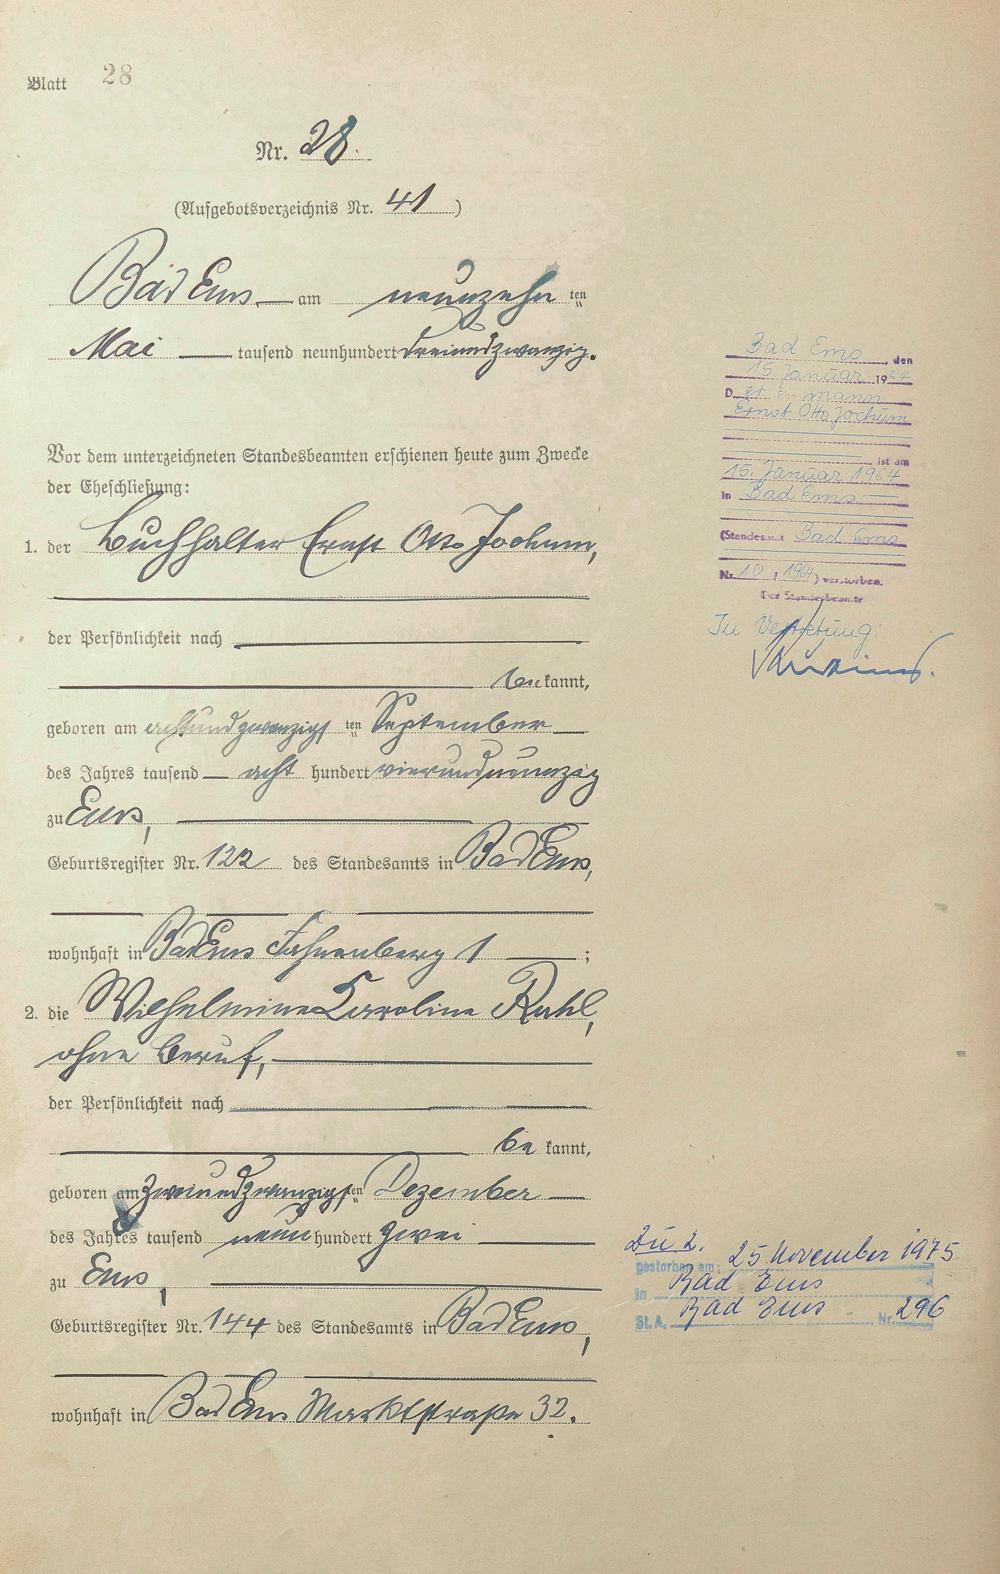 Blatt 28
Nr. 28.
(Aufgebotsverzeichnis Nr. 41)
Bad Ems — am neunzehn ten
Mai — tausend neunhundert dreiundzwanzig.
Vor dem unterzeichneten Standesbeamten erschienen heute zum Zwecke
der Eheschließung:
1. der Buchhalter Ernst Otto Jochum,
der Persönlichkeit nach
bekannt,
geboren am achtundzwanzigsten September
des Jahres tausend — acht hundert vierundneunzig
zu Ems,
Geburtsregister Nr. 122 des Standesamts in Bad Ems,
wohnhaft in Bad Ems Fahnenberg 1 ;
2. die Wilhelmine Karoline Ruhl,
ohne Beruf,
der Persönlichkeit nach
bekannt,
geboren am zweiundzwanzigsten Dezember
des Jahres tausend neun hundert zwei
zu Ems,
Geburtsregister Nr. 144 des Standesamts in Bad Ems,
wohnhaft in Bad Ems Marktstraße 32.
Bad Ems, den
15. Januar 1964
D er mann
Ernst Otto Jochum
ist am
15. Januar 1964
in Bad Ems
(Standesamt Bad Ems
Nr. 10 / 1964) verstorben.
Der Standesbeamte
In Vertretung:
Zu 2.
gestorben am: 25 November 1975
in Bad Ems
St.A. Bad Ems Nr. 296